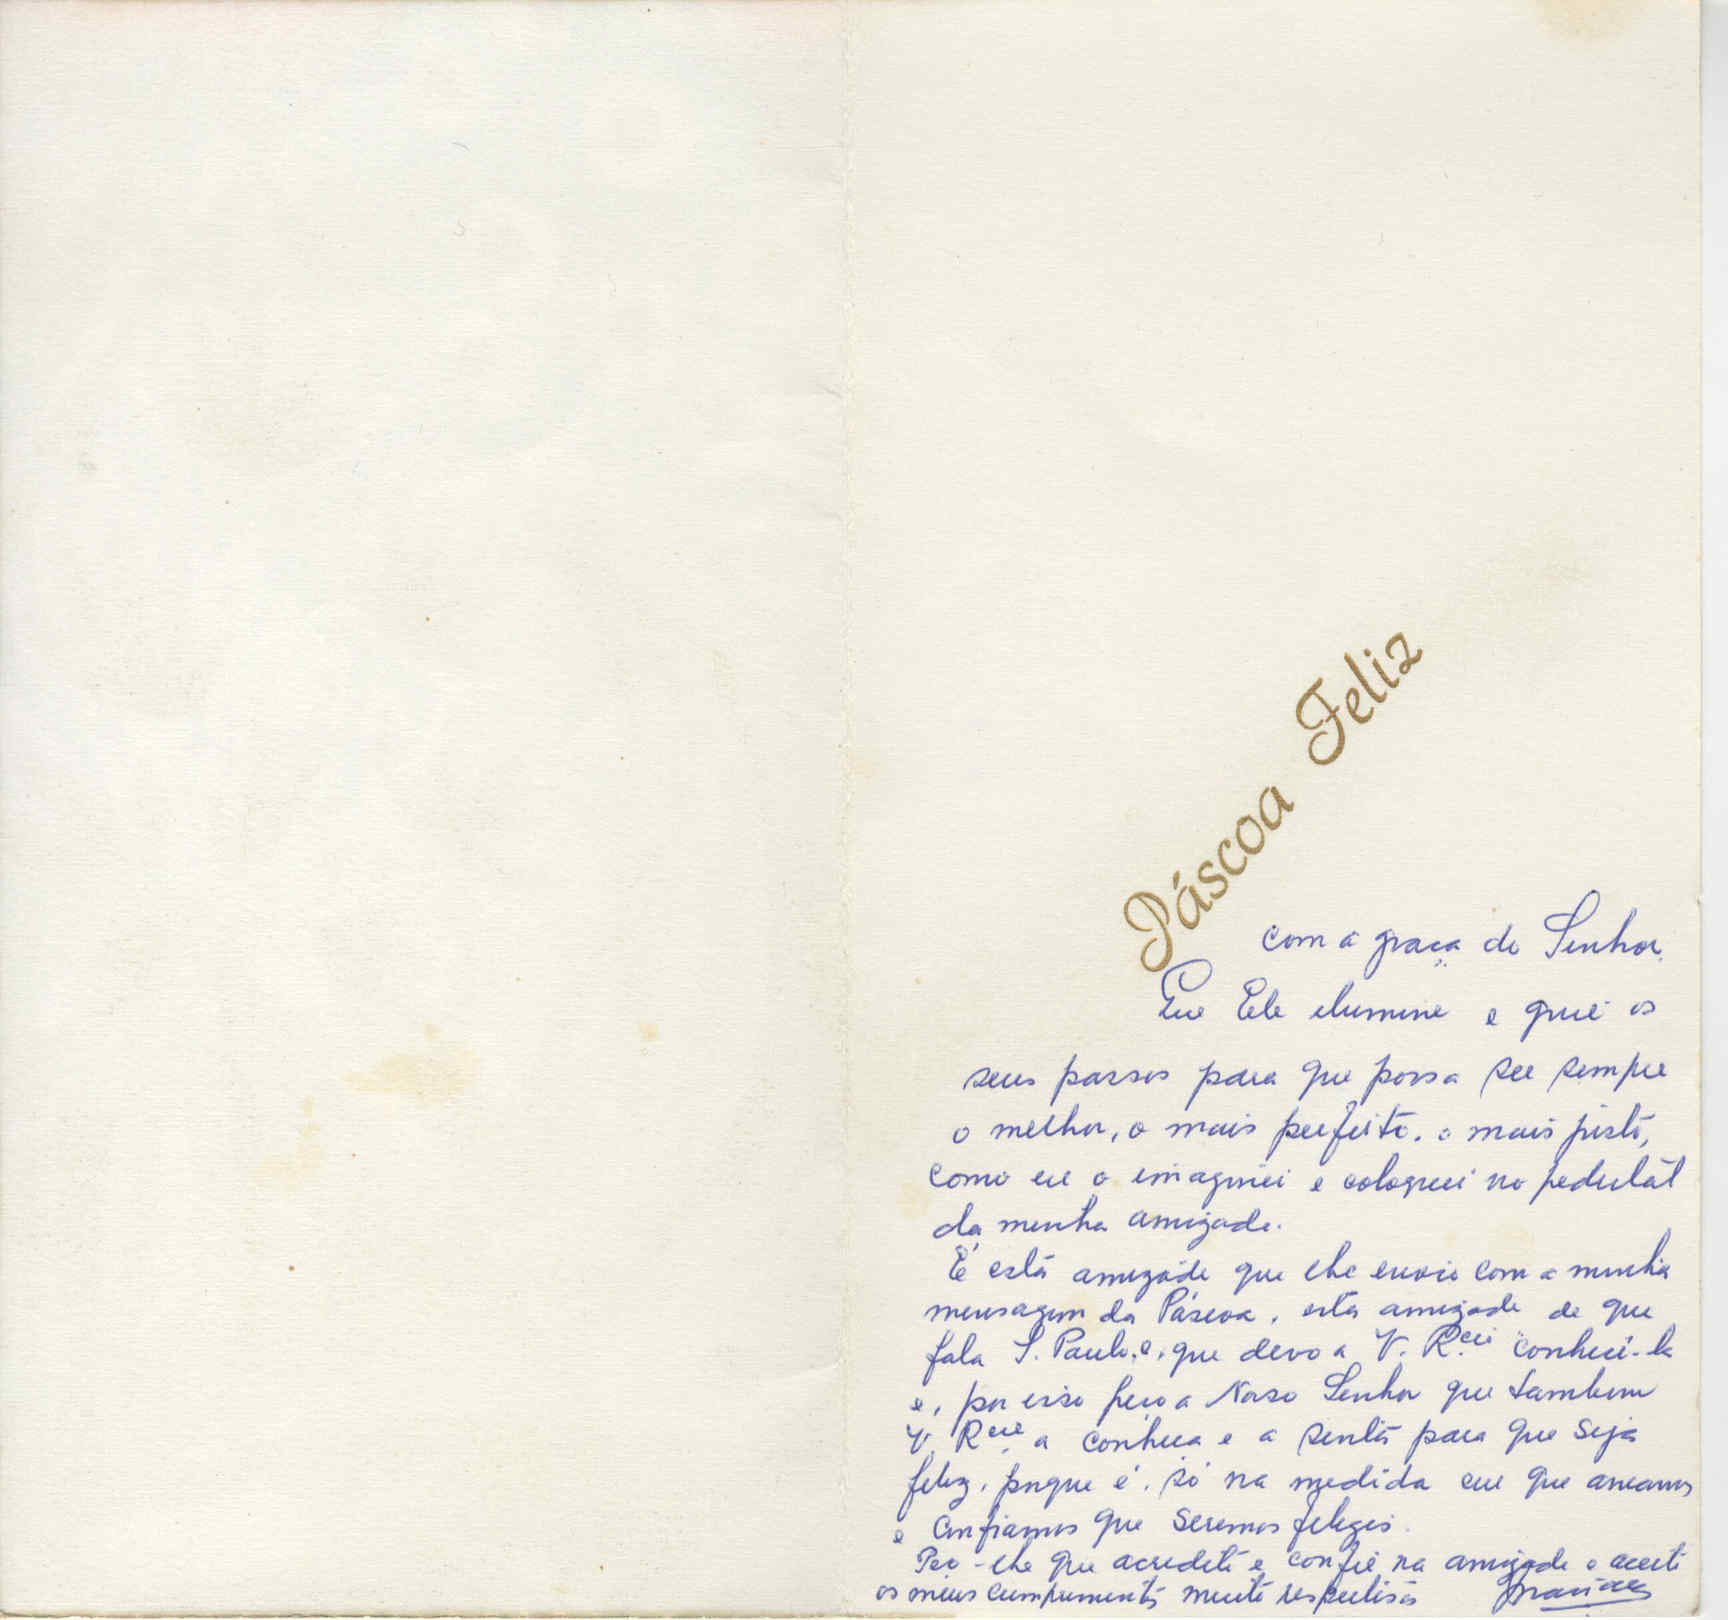 Páscoa Feliz
com a graça do Senhor.
Que Ele ilumine e guie os
seus passos para que possa ser sempre
o melhor, o mais perfeito, o mais justo,
como eu o imaginei e coloquei no pedestal
da minha amizade.
É esta amizade que lhe envio com a minha
mensagem da Páscoa, esta amizade de que
fala S. Paulo, e, que devo a V. Rcia conhecê-la
e, por isso peço a Nosso Senhor que tambem
V. Rcia a conheça e a sinta para que seja
feliz, porque é, só na medida em que amamos
e confiamos que seremos felizes.
Peço-lhe que acredite e confie na amizade e aceite
os meus cumprimentos muito respeitosos